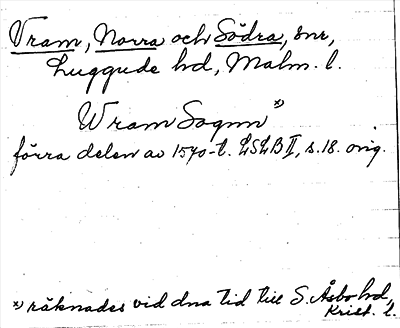 Vram, Norra och Södra, snr,
Luggude hd, Malm. l.
Wram Sognn *)
förra delen av 1570-t. LSLB II, s. 18. orig.
*) räknades vid dna tid till S. Åsbo hd,
Krist. l.